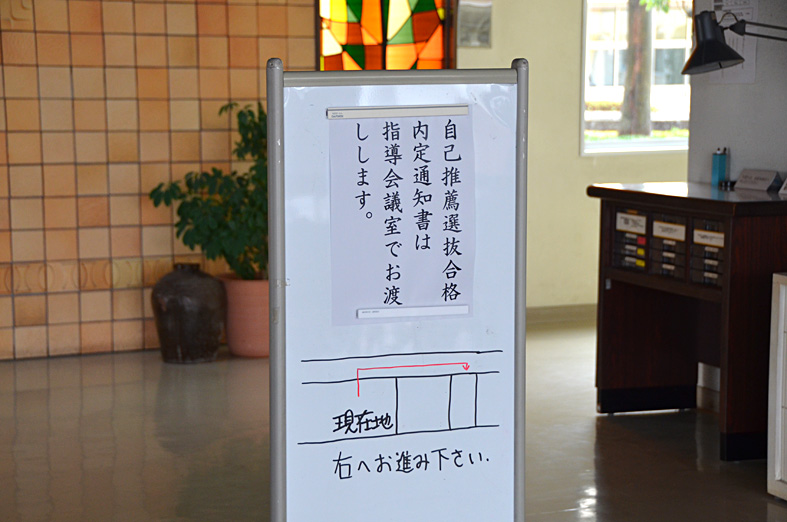 自己推薦選抜合格
内定通知書は
指導会議室でお渡
しします。
現在地
右へお進み下さい.